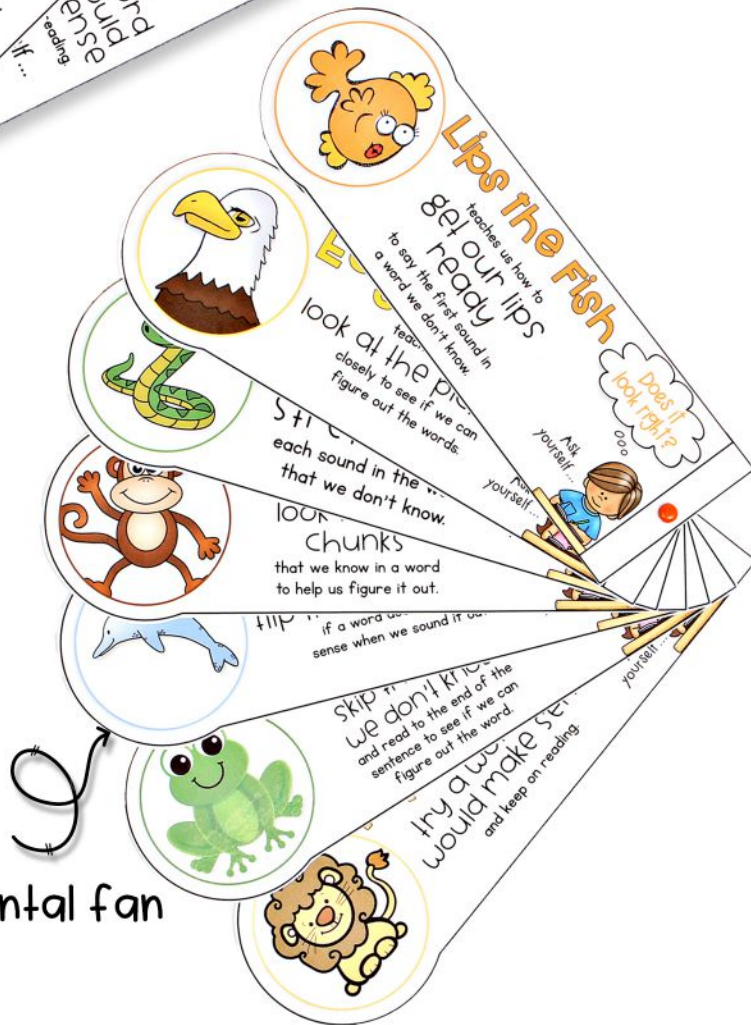 ould
ense
eading.
lf ...
Lips the Fish
teaches us how to
get our lips
ready
to say the first sound in
a word we don't know.
Does it
look right?
Ask
yourself ...
look at the
closely to see if we can
figure out the words.
yourself ...
each sound in the
that we don't know.
look
chunks
that we know in a word
to help us figure it out.
if a word
sense when we sound it
skip
we don't
and read to the end of the
sentence to see if we can
figure out the word.
yourself ...
try a
would make
and keep on reading.
ntal fan